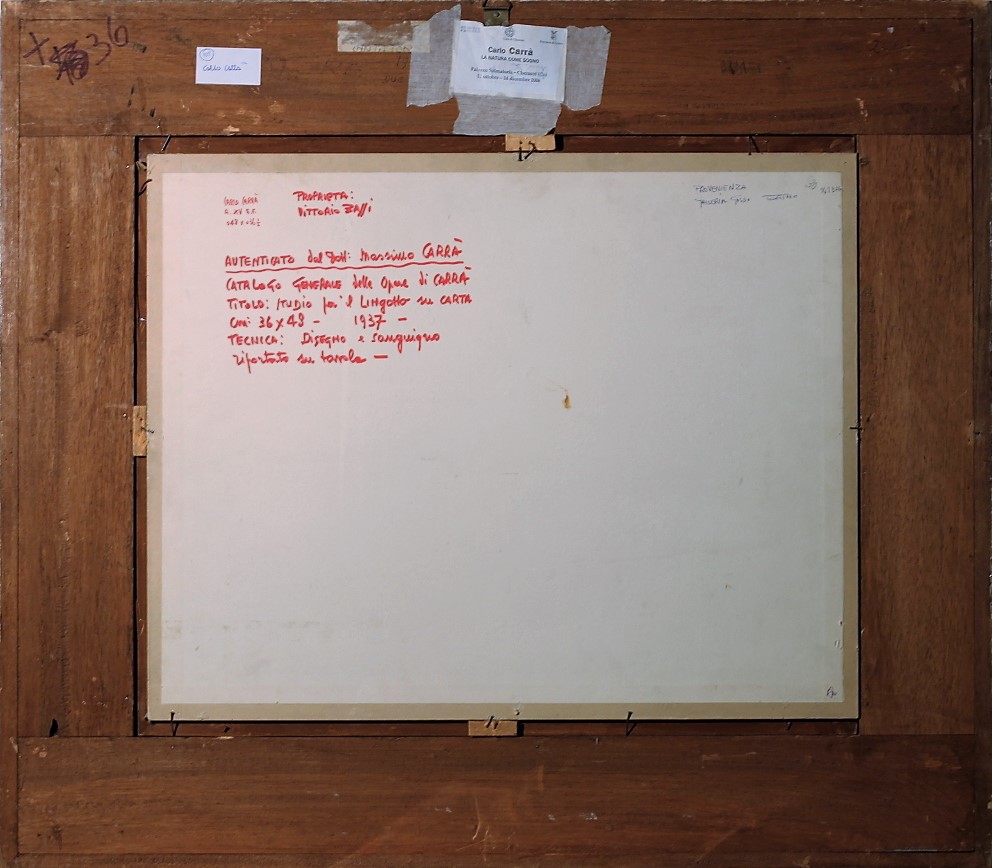 x 36
Carlo Carrà
Carlo Carrà
LA NATURA COME SOGNO
Palazzo Salmatoris - Cherasco (Cn)
CARLO CARRÀ
PROPRIETA:
Vittorio BASSI
PROVENIENZA
GALLERIA TORINO
AUTENTICATO dal Dott: Massimo CARRÀ
CATALOGO GENERALE delle Opere di CARRÀ
TITOLO: STUDIO per il Lingotto su CARTA
Cm: 36 x 48 - 1937 -
TECNICA: DISEGNO e sanguigno
riportato su tavola -